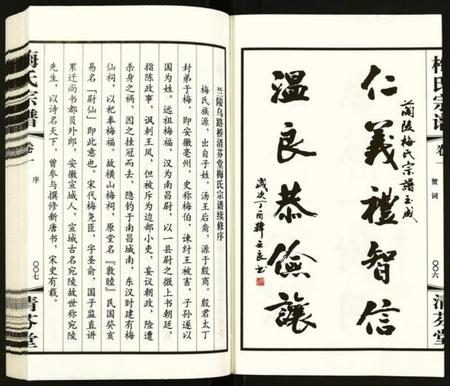 梅氏宗谱
卷一
贺词
〇〇六
清芬堂
蘭陵梅氏宗譜玉成
仁義禮智信
温良恭儉讓
歲次丁酉韓
梅氏宗谱
卷一
序
〇〇七
清芬堂
兰陵乌路桥清芬堂梅氏宗谱续修序
梅氏族源，出自子姓，汤王后裔，源于殷商。殷君太丁
封弟于梅，即安徽亳州，史称梅伯，谏纣王被害，子孙遂以
国为姓。远祖梅福，汉为南昌尉，以一县尉之微上书朝廷，
指陈政事，讽刺王凤，但被斥为边部小吏，妄议朝政，险遭
杀身之祸，因之挂冠而去，隐钓于南昌城南，东汉时建有梅
仙祠，以祀奉梅福。故横山梅祠，原堂名『敦睦』民国癸亥
易名『尉仙』即此意也。宋代梅尧臣，字圣俞，国子监直讲
累迁尚书都员外郎，安徽宣城人，宣城古名宛陵故世称宛陵
先生，以诗名天下，曾参与撰修新唐书，宋史有载。